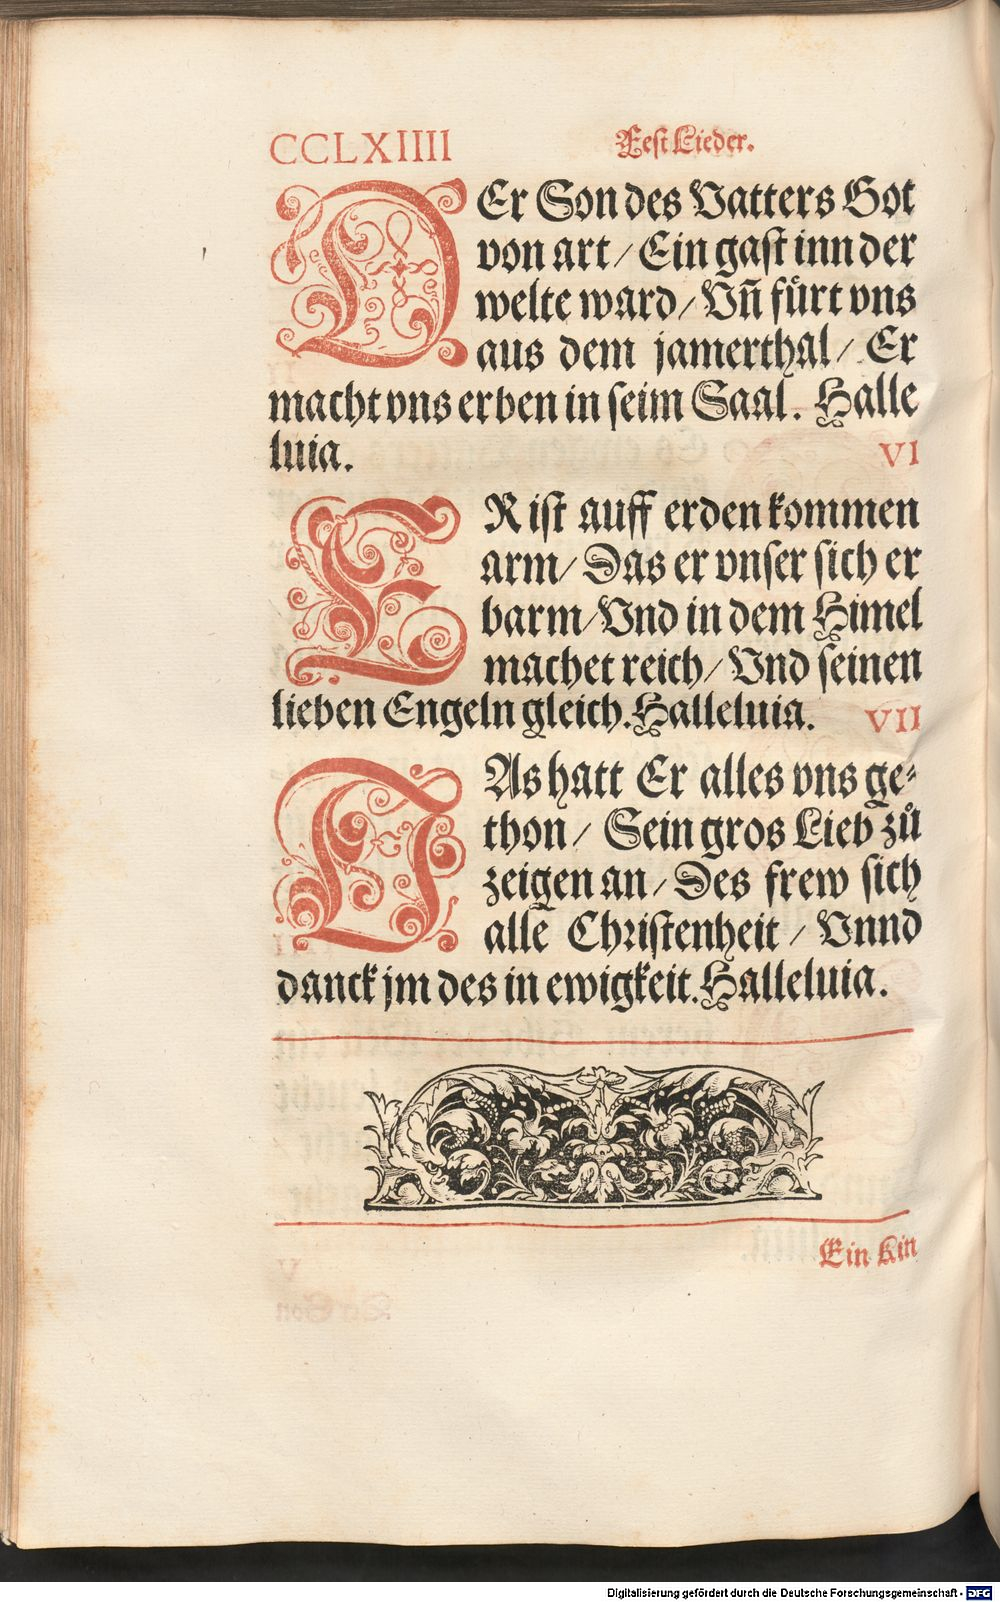 CCLXIIII Fest Lieder.
DEr Son des Vatters Got
von art / Ein gast inn der
welte ward / Vñ fuͤrt vns
aus dem jamerthal / Er
macht vns erben in seim Saal. Halle
luia. VI
ER ist auff erden kommen
arm / Das er vnser sich er
barm / Vnd in dem Himel
machet reich / Vnd seinen
lieben Engeln gleich. Halleluia. VII
DAs hatt Er alles vns ge⸗
thon / Sein gros Lieb zuͦ
zeigen an / Des frew sich
alle Christenheit / Vnnd
danck jm des in ewigkeit. Halleluia.
Ein Kin
Digitalisierung gefördert durch die Deutsche Forschungsgemeinschaft - DFG